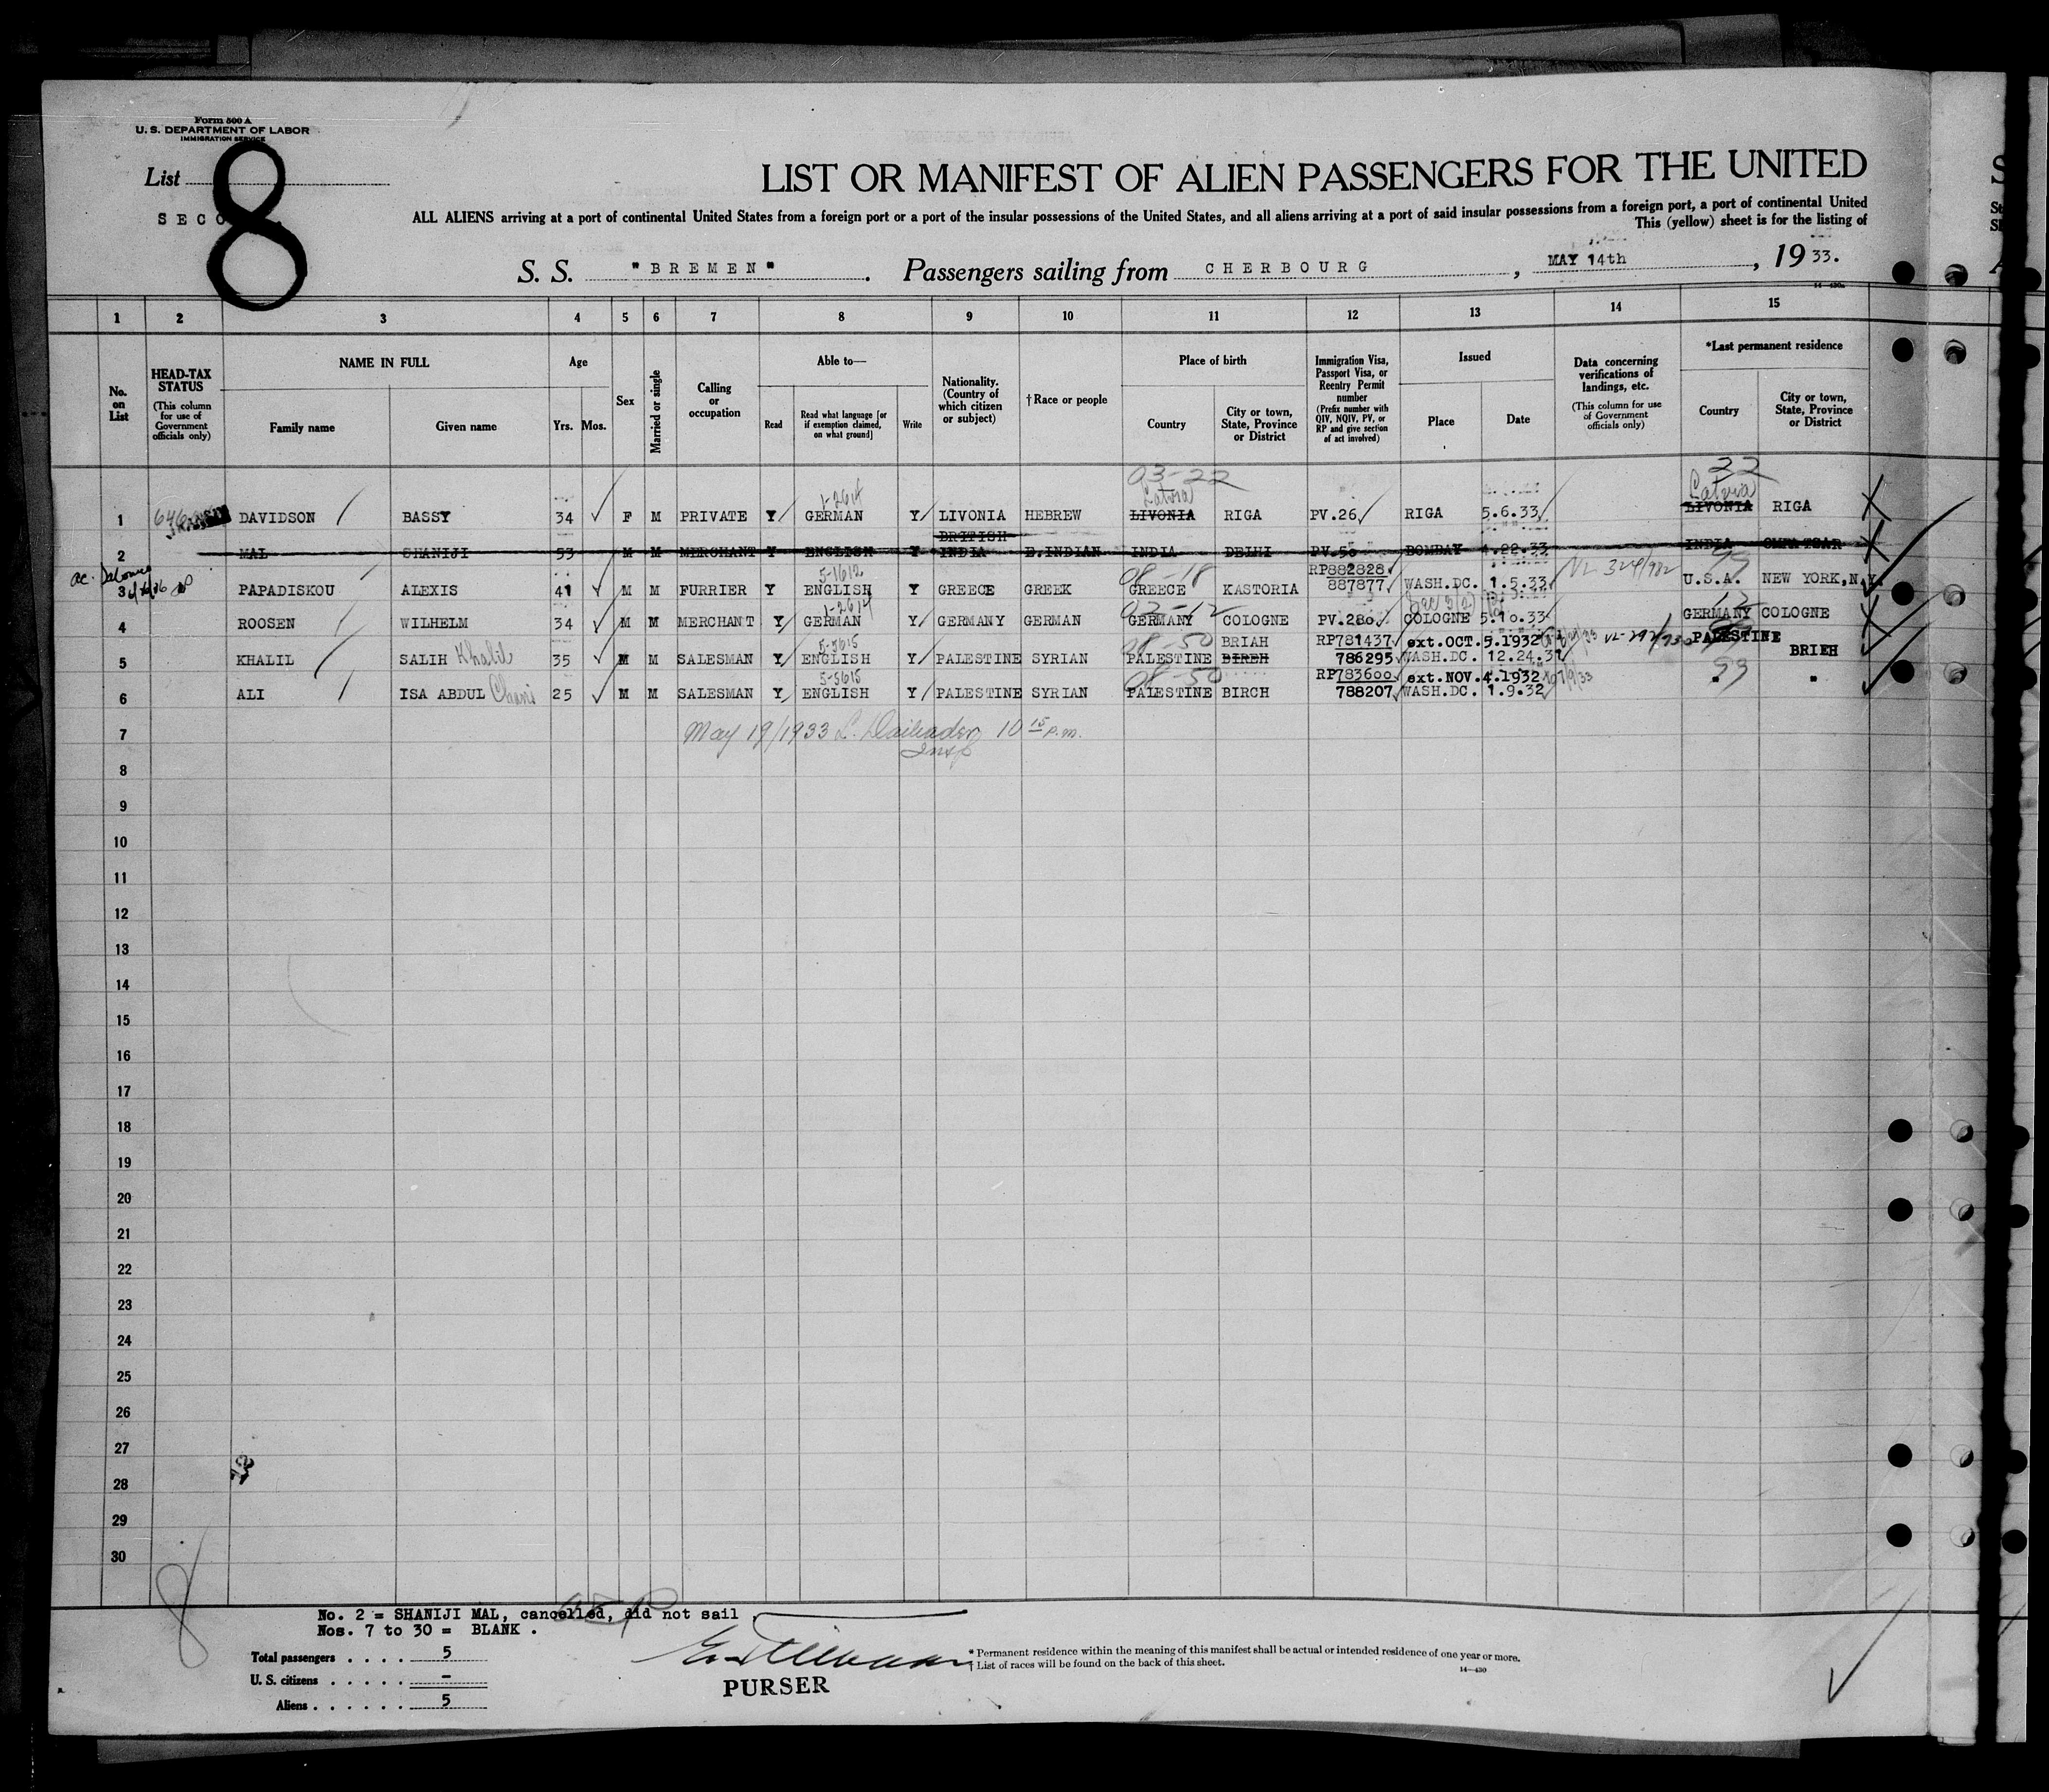 Form 500 A
U. S. DEPARTMENT OF LABOR
IMMIGRATION SERVICE
List
8
SECO
LIST OR MANIFEST OF ALIEN PASSENGERS FOR THE UNITED
ALL ALIENS arriving at a port of continental United States from a foreign port or a port of the insular possessions of the United States, and all aliens arriving at a port of said insular possessions from a foreign port, a port of continental United
This (yellow) sheet is for the listing of
S. S. "BREMEN" . Passengers sailing from CHERBOURG , MAY 14th , 1933.
1 2 3 4 5 6 7 8 9 10 11 12 13 14 15
No. on List
HEAD-TAX STATUS (This column for use of Government officials only)
NAME IN FULL Family name Given name
Age Yrs. Mos.
Sex
Married or single
Calling or occupation
Able to— Read Read what language [or if exemption claimed, on what ground] Write
Nationality. (Country of which citizen or subject)
†Race or people
Place of birth Country City or town, State, Province or District
Immigration Visa, Passport Visa, or Reentry Permit number (Prefix number with QIV, NQIV, PV, or RP and give section of act involved)
Issued Place Date
Data concerning verifications of landings, etc. (This column for use of Government officials only)
*Last permanent residence Country City or town, State, Province or District
03-22 22
1-2614 Latvia Latvia
1 646 DAVIDSON BASSY 34 F M PRIVATE Y GERMAN Y LIVONIA HEBREW LIVONIA RIGA PV.26 RIGA 5.6.33 LIVONIA RIGA
BRITISH
2 MAL SHANIJI 53 M M MERCHANT Y ENGLISH Y INDIA E.INDIAN INDIA DELHI PV.50 BOMBAY 4.22.33 INDIA
5-1612 08-18 RP882828
3 PAPADISKOU ALEXIS 41 M M FURRIER Y ENGLISH Y GREECE GREEK GREECE KASTORIA 887877 WASH.DC. 1.5.33 U.S.A. NEW YORK,N.Y.
1-2614 03-12 12
4 ROOSEN WILHELM 34 M M MERCHANT Y GERMAN Y GERMANY GERMAN GERMANY COLOGNE PV.280. COLOGNE 5.10.33 GERMANY COLOGNE
5-5615 08-50 BRIAH RP781437 ext.OCT.5.1932 PALESTINE
5 KHALIL SALIH Khalil 35 M M SALESMAN Y ENGLISH Y PALESTINE SYRIAN PALESTINE BIREH 786295 WASH.DC. 12.24.31 BRIEH
5-5615 08-50 RP783600 ext.NOV.4.1932 99
6 ALI ISA ABDUL 25 M M SALESMAN Y ENGLISH Y PALESTINE SYRIAN PALESTINE BIRCH 788207 WASH.DC. 1.9.32 " "
7 May 19/1933 10 15 p.m.
Insp
8
9
10
11
12
13
14
15
16
17
18
19
20
21
22
23
24
25
26
27
28
29
30
8
No. 2 = SHANIJI MAL, cancelled, did not sail
Nos. 7 to 30 = BLANK .
Total passengers . . . . 5
U. S. citizens . . . . . -
Aliens . . . . . . 5
PURSER
* Permanent residence within the meaning of this manifest shall be actual or intended residence of one year or more.
† List of races will be found on the back of this sheet.
14—430